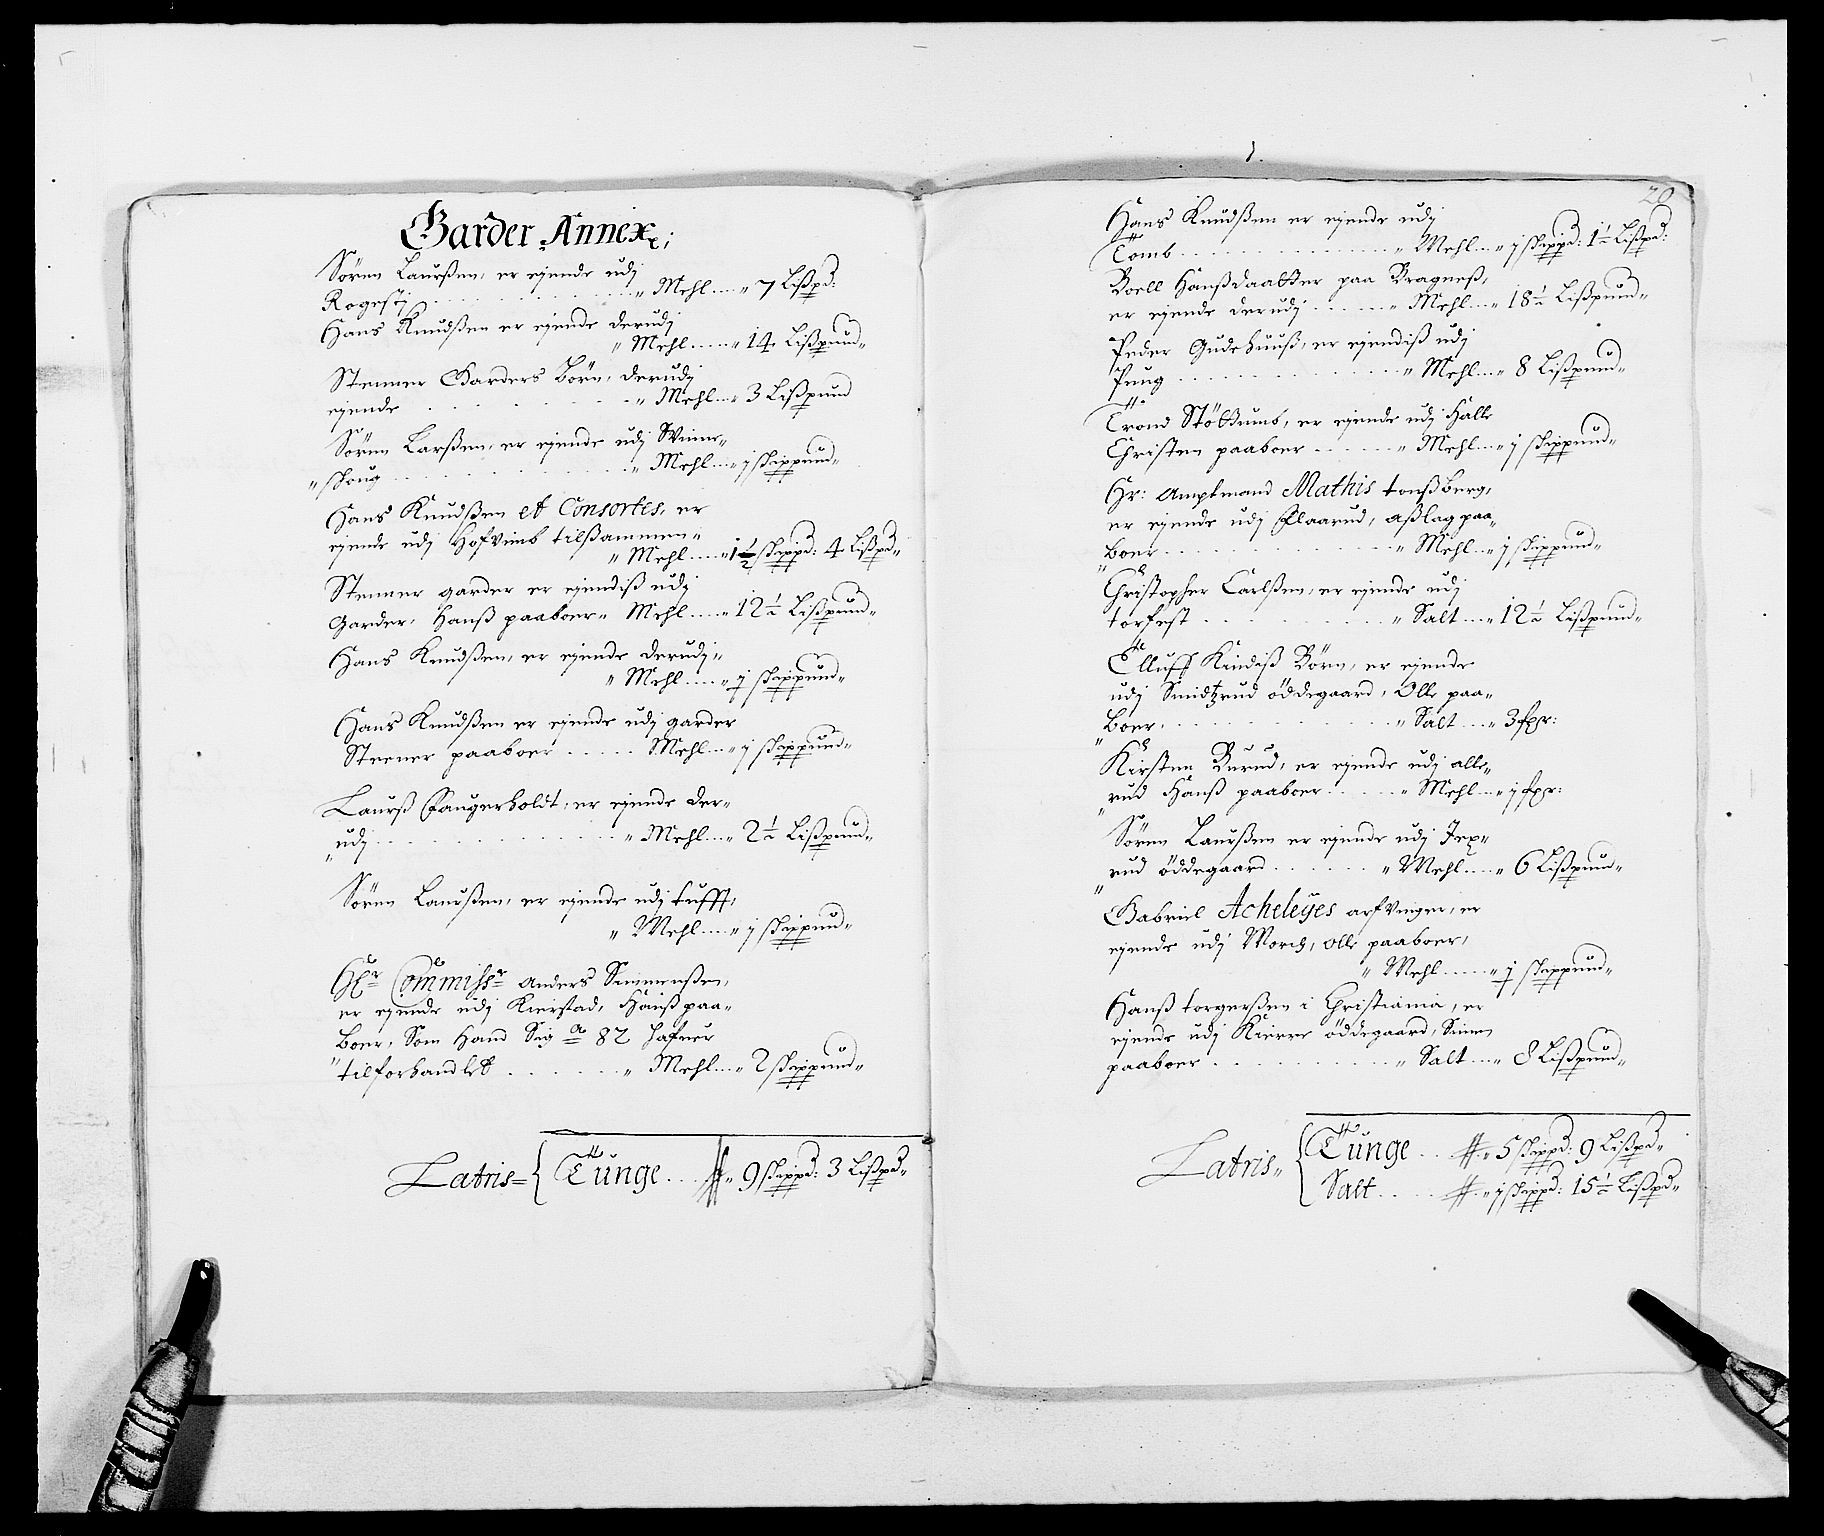 Garder Annex;
Sörenn Laurßen, er ejende udj
Rogestj . . . . . . . . . „ Mehl .... „ 7 Lißpd:
Hans Knudßen er ejende derudj
„ Mehl .... „ 14 Lißpund„
Stenner Garders Börn, derudj
ejende . . . . . . . . . „ Mehl ... „ 3 Lißpund
Sörenn Larßen, er ejende udj Winne„
„ schoug . . . . . . . . . „ Mehl ... „ j schippund„
Hans Knudßen et Consortes, er
ejende udj Hofvimb tilßammen„
„ Mehl .... „ 1½ schippd: 4 Lißpd„
Stenner garder er ejendiß udj
Garder, Hanß paaboer „ Mehl .... „ 12½ Lißpund„
Hans Knudßen, er ejende derudj„
„ Mehl .... „ j schippund„
Hans Knudßen er ejende udj garder
Stenner paaboer . . . . . Mehl ... „ j schippund„
Laurß Faugerholdt, er ejende der„
„ udj . . . . . . . . . „ Mehl ... „ 2½ Lißpund„
Sörenn Laurßen, er ejende udj tufft,
„ Mehl .... „ j schippund„
Hr Commissr Anders Simmenßen,
er ejende udj Kierstad, Hanß paa„
Boer, Som Hand Sig Ao 82 hafuer
„ tilforhandlet . . . . . . „ Mehl ... „ 2 schippund„
Latris = { Tunge . . . „ 9 schippd: 3 Lißpd„
20
Hans Knudßen er ejende udj
Tomb . . . . . . . . . „ Mehl ... „ j schippd: 1½ Lißpd:
Boell Hanßdaatter paa Bragneß,
er ejende derudj . . . . . „ Mehl ... „ 18½ Lißpund„
Peder Gudehuuß, er ejendiß udj
Puug . . . . . . . . . „ Mehl ... „ 8 Lißpund„
Trond Stöttumb, er ejende udj Halle
Christen paaboer . . . . . „ Mehl ... „ j schippund„
Hr: Amptmand Mathis tonßberg,
er ejende udj Flaarud, Aßlag paa„
„ Boer . . . . . . . . . „ Mehl ... „ j schippund„
Christopher Carlßen, er ejende udj
torfest . . . . . . . . . „ Salt ... „ 12½ Lißpund„
Elluff Kindiß Börn, er ejende
udj Smidtzrud öddegaard, Olle paa„
„ Boer, . . . . . . . . . „ Salt ... „ 3 fxr:
Kirsten Rurud, er ejende udj alle„
„ rud Hanß paaboer . . . . . „ Mehl ... „ j fxr:
Sörenn Laurßen er ejende udj Jex„
„ rud öddegaard . . . . . . „ Mehl .... „ 6 Lißpund„
Gabriel Acheleyes arfvinger, er
ejende udj Morch, Olle paaboer,
„ Mehl ..... „ j schippund„
Hanß torgerßen i Christiania, er
ejende udj Kierre öddegaard, Simen
paaboer . . . . . . . . . „ Salt ... „ 8 Lißpund„
Latris„ { Tunge . . . „ 5 schippd: 9 Lißpd„
Salt . . . . „ j schippd: 15½ Lißpd„